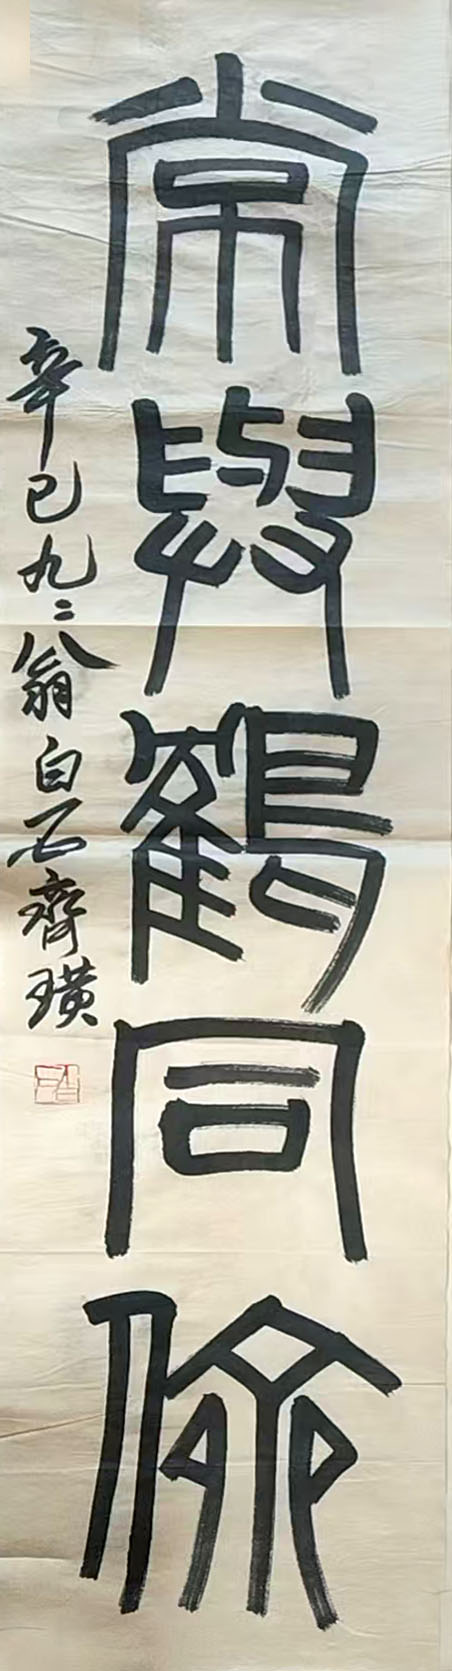 常與鶴同儕
辛巳九二翁白石齊璜